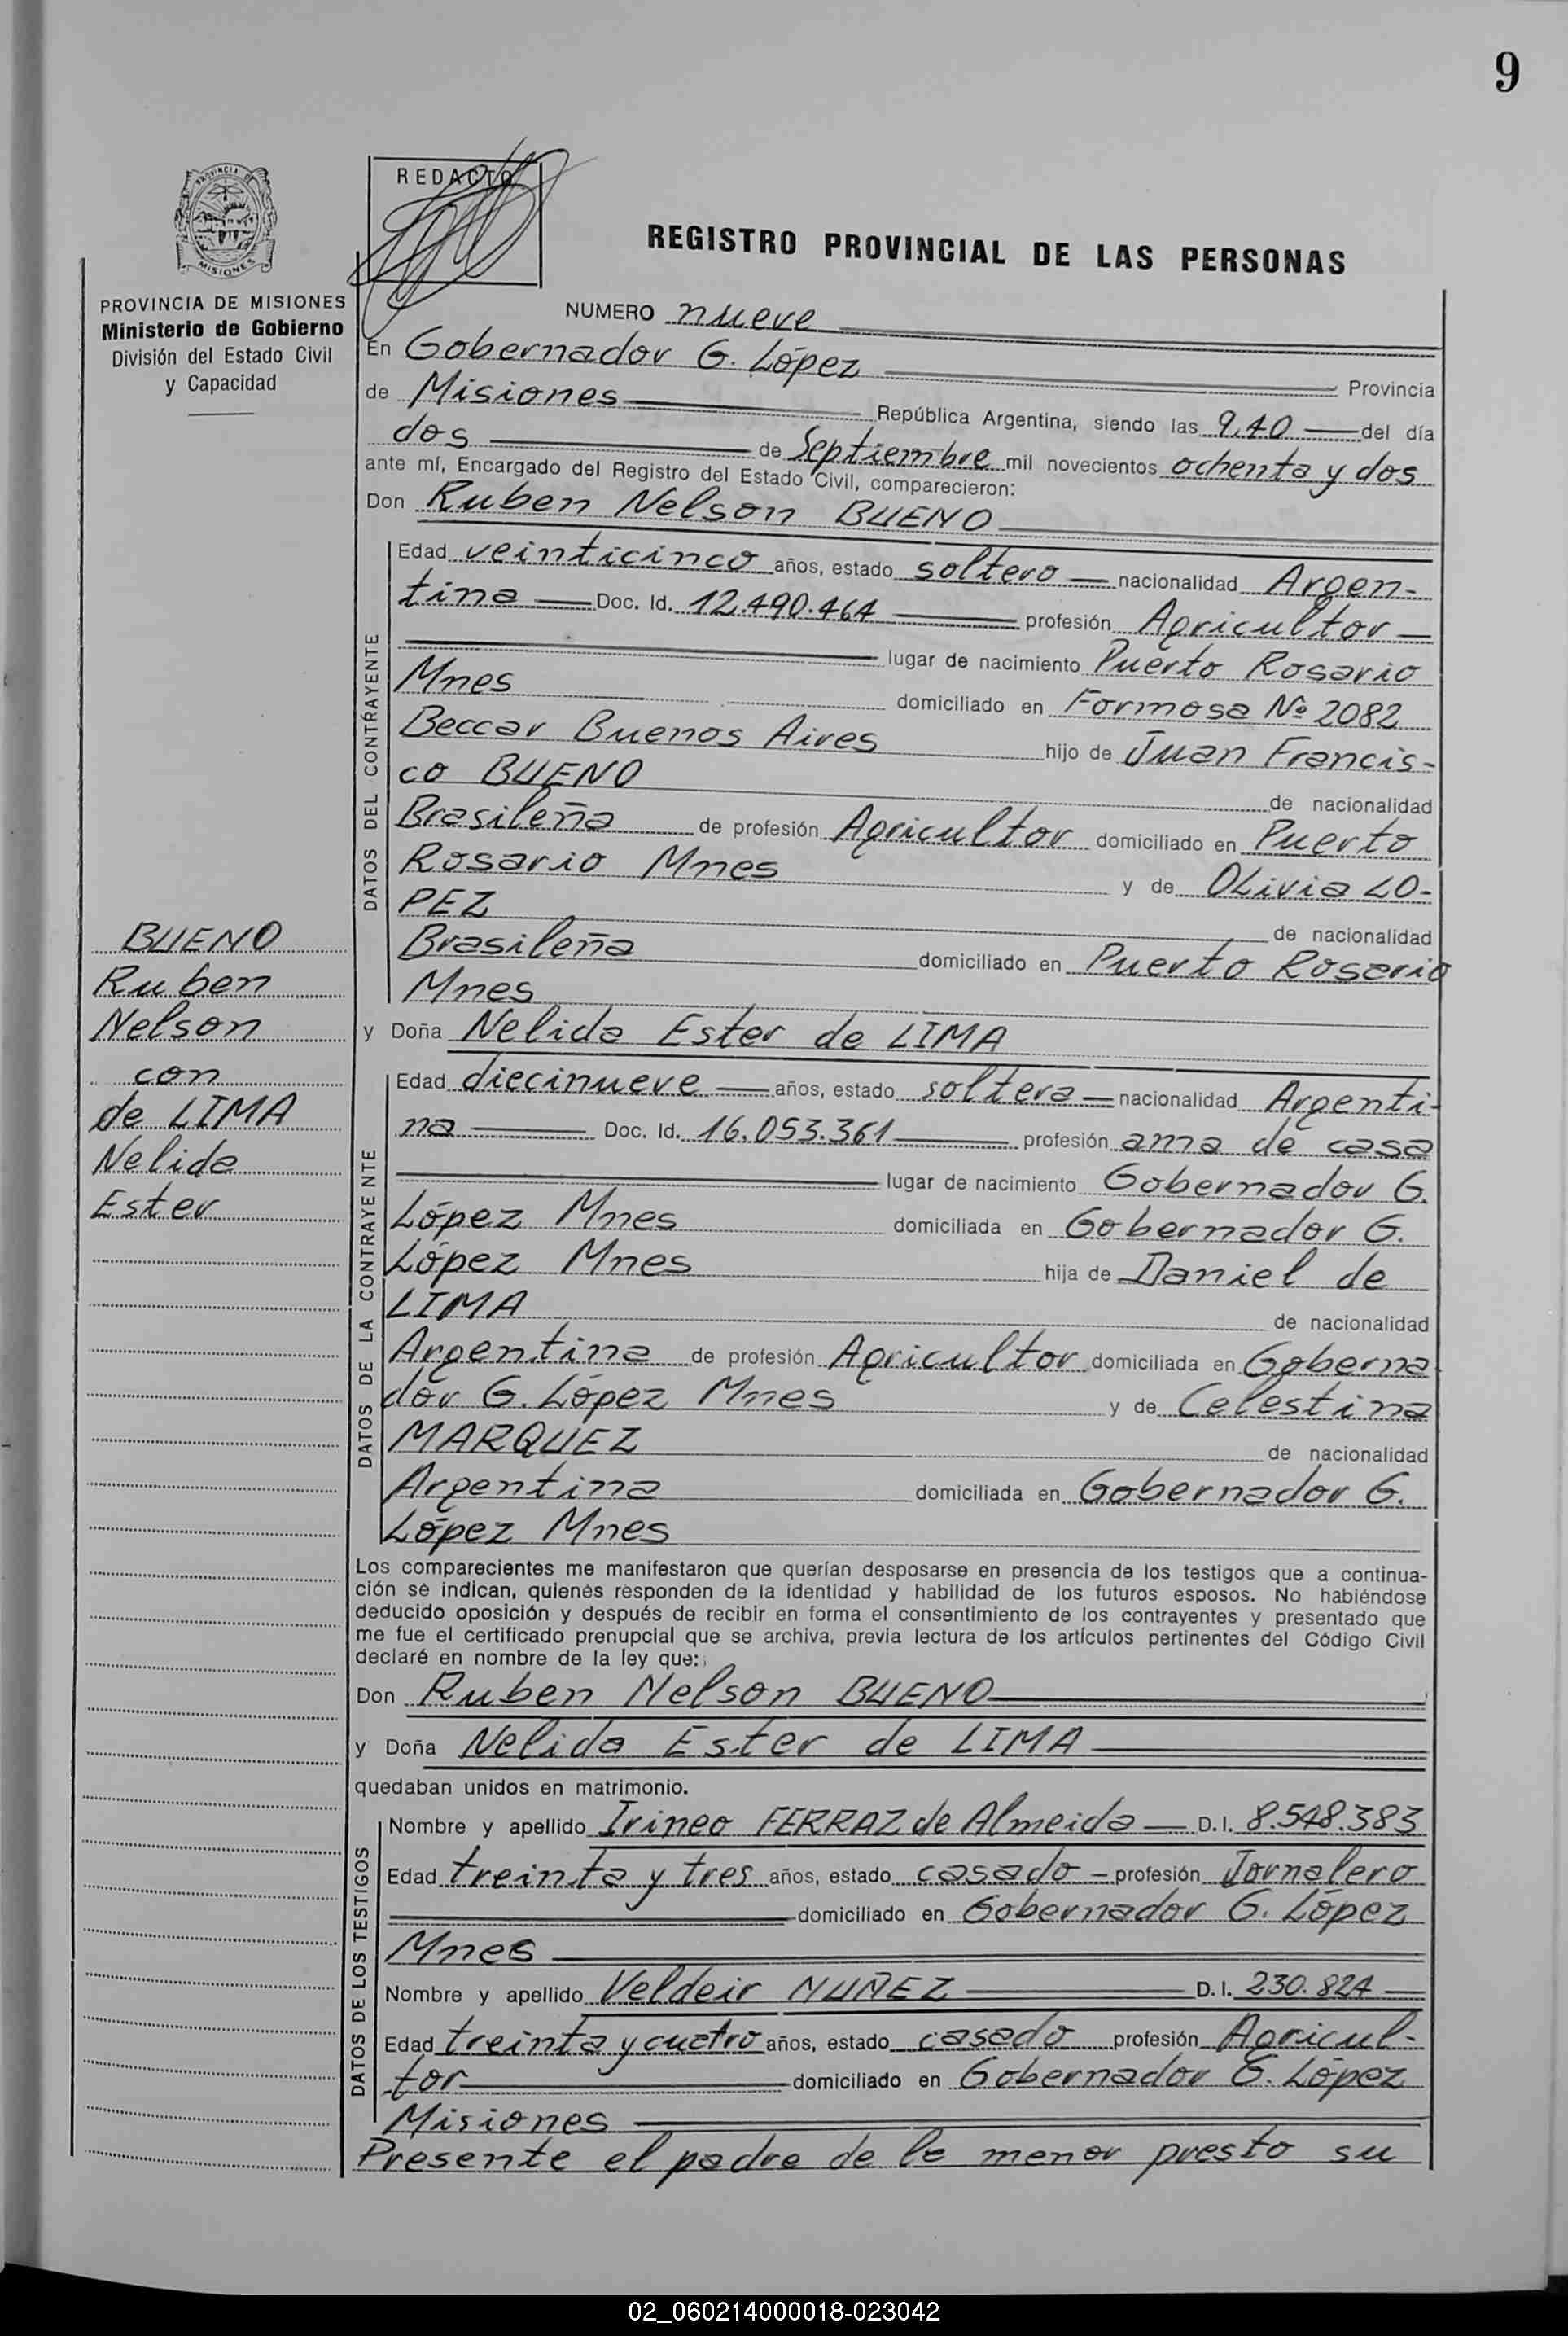 9
PROVINCIA DE
MISIONES
REDACTO
REGISTRO PROVINCIAL DE LAS PERSONAS
PROVINCIA DE MISIONES
Ministerio de Gobierno
División del Estado Civil
y Capacidad
NUMERO nueve
En Gobernador G. López Provincia
de Misiones República Argentina, siendo las 9,40 del día
dos de Septiembre mil novecientos ochenta y dos
ante mí, Encargado del Registro del Estado Civil, comparecieron:
Don Ruben Nelson BUENO
DATOS DEL CONTRAYENTE
Edad veinticinco años, estado soltero nacionalidad Argen-
tina Doc. Id. 12.490.464 profesión Agricultor
lugar de nacimiento Puerto Rosario
Mnes domiciliado en Formosa Nº 2082
Beccar Buenos Aires hijo de Juan Francis-
co BUENO de nacionalidad
Brasileña de profesión Agricultor domiciliado en Puerto
Rosario Mnes y de OLivia LO-
PEZ de nacionalidad
Brasileña domiciliado en Puerto Rosario
Mnes
BUENO
Ruben
Nelson
con
de LIMA
Nelida
Ester
y Doña Nelida Ester de LIMA
DATOS DE LA CONTRAYENTE
Edad diecinueve años, estado soltera nacionalidad Argenti-
na Doc. Id. 16.053.361 profesión ama de casa
lugar de nacimiento Gobernador G.
López Mnes domiciliada en Gobernador G.
López Mnes hija de Daniel de
LIMA de nacionalidad
Argentina de profesión Agricultor domiciliada en Goberna
dor G. López Mnes y de Celestina
MARQUEZ de nacionalidad
Argentina domiciliada en Gobernador G.
López Mnes
Los comparecientes me manifestaron que querían desposarse en presencia de los testigos que a continua-
ción se indican, quienes responden de la identidad y habilidad de los futuros esposos. No habiéndose
deducido oposición y después de recibir en forma el consentimiento de los contrayentes y presentado que
me fue el certificado prenupcial que se archiva, previa lectura de los artículos pertinentes del Código Civil
declaré en nombre de la ley que:
Don Ruben Nelson BUENO
y Doña Nelida Ester de LIMA
quedaban unidos en matrimonio.
DATOS DE LOS TESTIGOS
Nombre y apellido Irineo FERRAZ de Almeida D.I. 8.548.383
Edad treinta y tres años, estado casado profesión Jornalero
domiciliado en Gobernador G. López
Mnes
Nombre y apellido Veldeir NUÑEZ D.I. 230.824
Edad treinta y cuatro años, estado casado profesión Agricul-
tor domiciliado en Gobernador G. López
Misiones
Presente el padre de la menor presto su
02_060214000018-023042